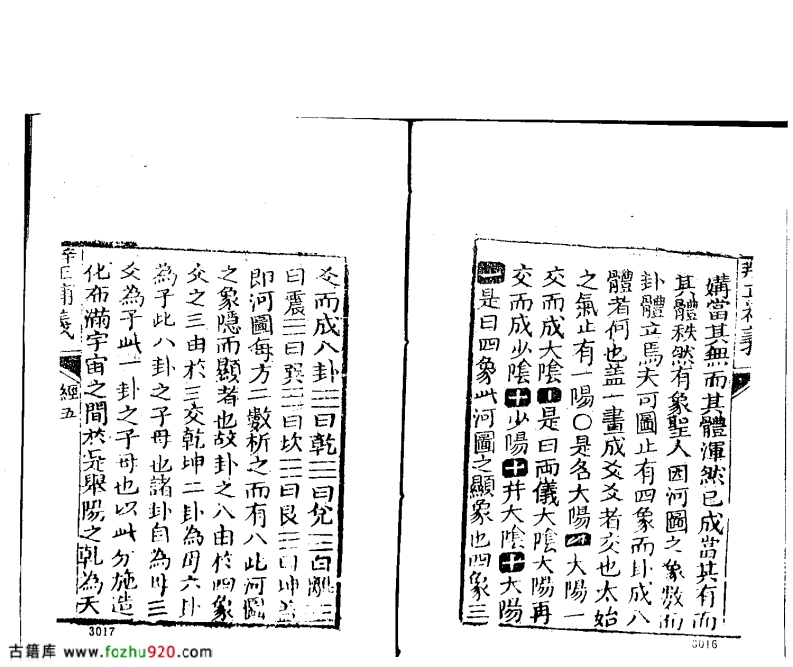 媾當其無而其體渾然已成當其有而
其體秩然有象聖人因河圖之象數而
卦體立焉夫可圖止有四象而卦成八
體者何也盖一畫成爻爻者交也太始
之氣止有一陽○是名大陽大陽一
交而成大陰是曰兩儀大陰大陽再
交而成少陰十少陽十并大陰十大陽
一是曰四象此河圖之顯象也四象三
3016
爻而成八卦☰曰乾☱曰兌☲曰離☳
曰震☴曰巽☵曰坎☶曰艮☷曰坤盖
即河圖每方二數析之而有八此河圖
之象隱而顯者也故卦之八由於四象
爻之三由於三交乾坤二卦為母六卦
為子此八卦之子母也諸卦自為母三
爻為子此一卦之子母也以此分施造
化布滿宇宙之間於是舉陽之乾為天
經五
3017
古籍库 www.fozhu920.com